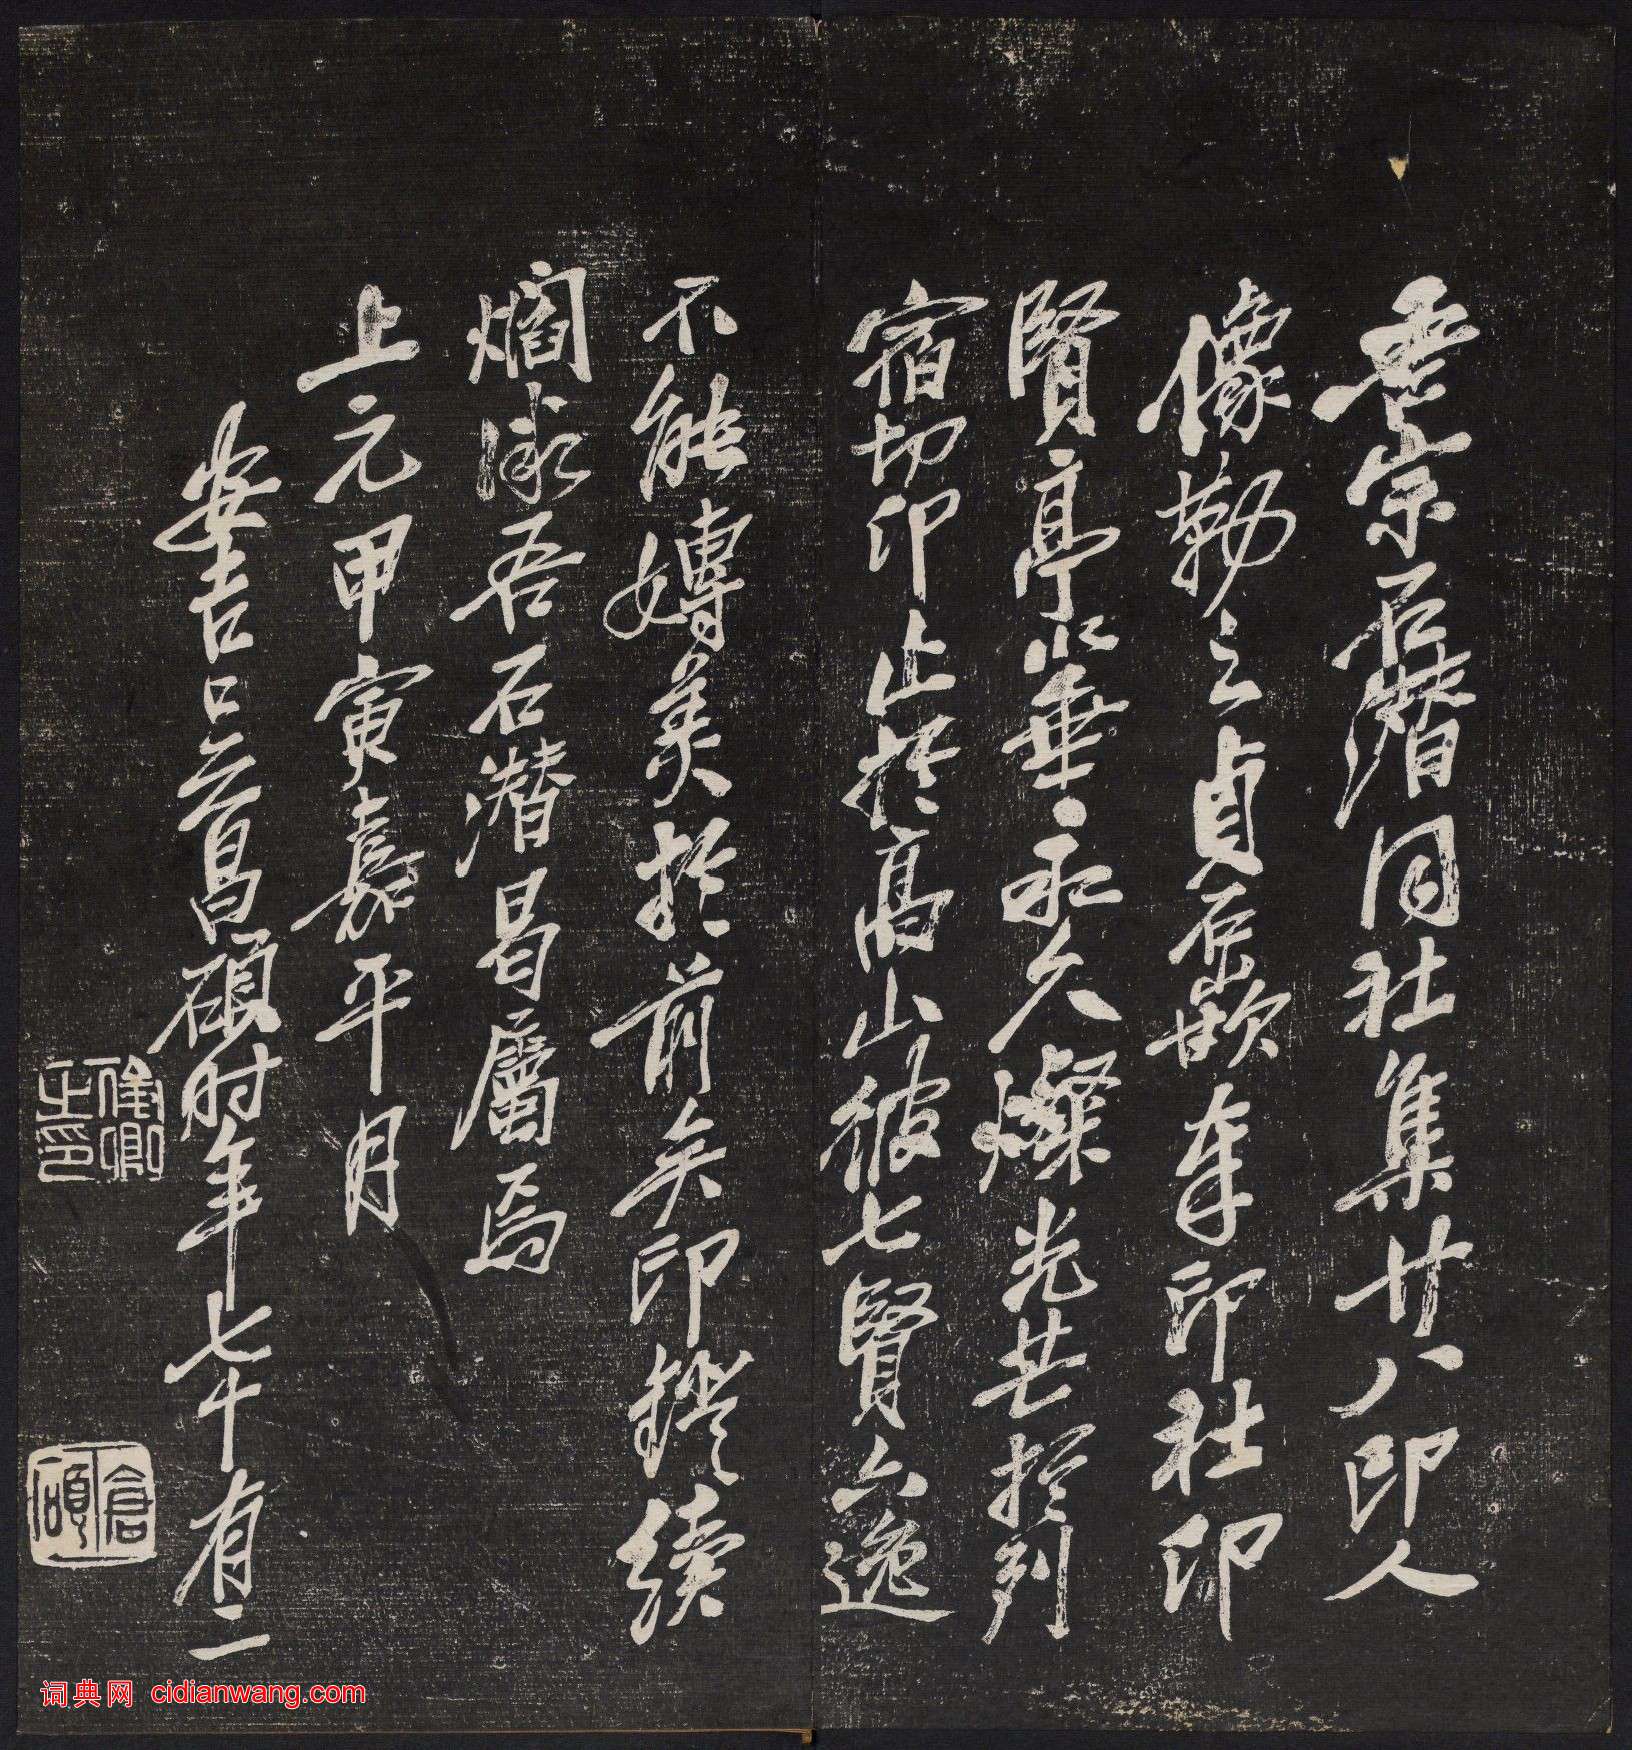 吾宗石潛同社集廿八印人
像勒之貞石嵌奉印社印
賢亭業業永久燦光芒於列
宿切印止於高山彼七賢六逸
不能專美於前矣印鐙續
爓承吾石潛勗屬焉
上元甲寅嘉平月
安吉吳昌碩時年七十有二
俊卿之印
倉碩
词典网 cidianwang.com